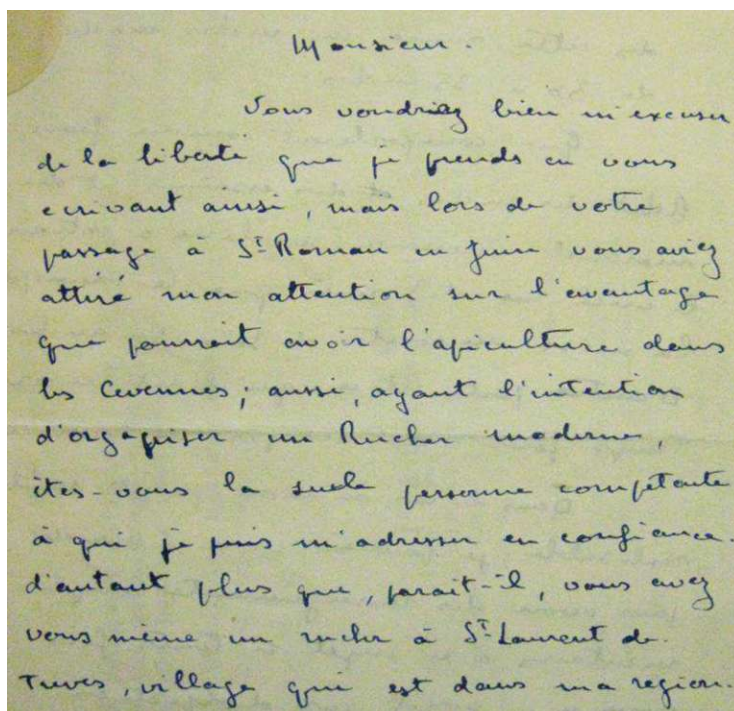 Monsieur.
Vous voudriez bien m'excuser
de la liberté que je prends en vous
ecrivant ainsi, mais lors de votre
passage à St Roman en Juin vous aviez
attiré mon attention sur l'avantage
que pourrait avoir l'apiculture dans
les Cevennes; aussi, ayant l'intention
d'organiser un Rucher moderne,
êtes-vous la seule personne compétente
à qui je puis m'adresser en confiance.
d'autant plus que, parait-il, vous avez
vous même un rucher à St Laurent de
Treves, village qui est dans ma region.